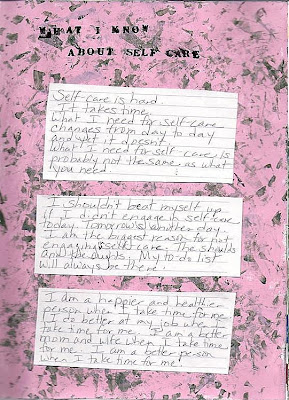 WHAT I KNOW
ABOUT SELF CARE
Self-care is hard.
It takes time.
What I need for self-care
changes from day to day
and yet it doesn't.
What I need for self-care is
probably not the same as what
you need.
I shouldn't beat myself up
if I didn't engage in self care
today. Tomorrow's another day.
I am the biggest reason for not
engaging self care. The shoulds
and the oughts. My to do list
will always be there.
I am a happier and healthier
person when I take time for me.
I do better at my job when I
take time for me. I am a better
mom and wife when I take time
for me. I am a better person
when I take time for me!